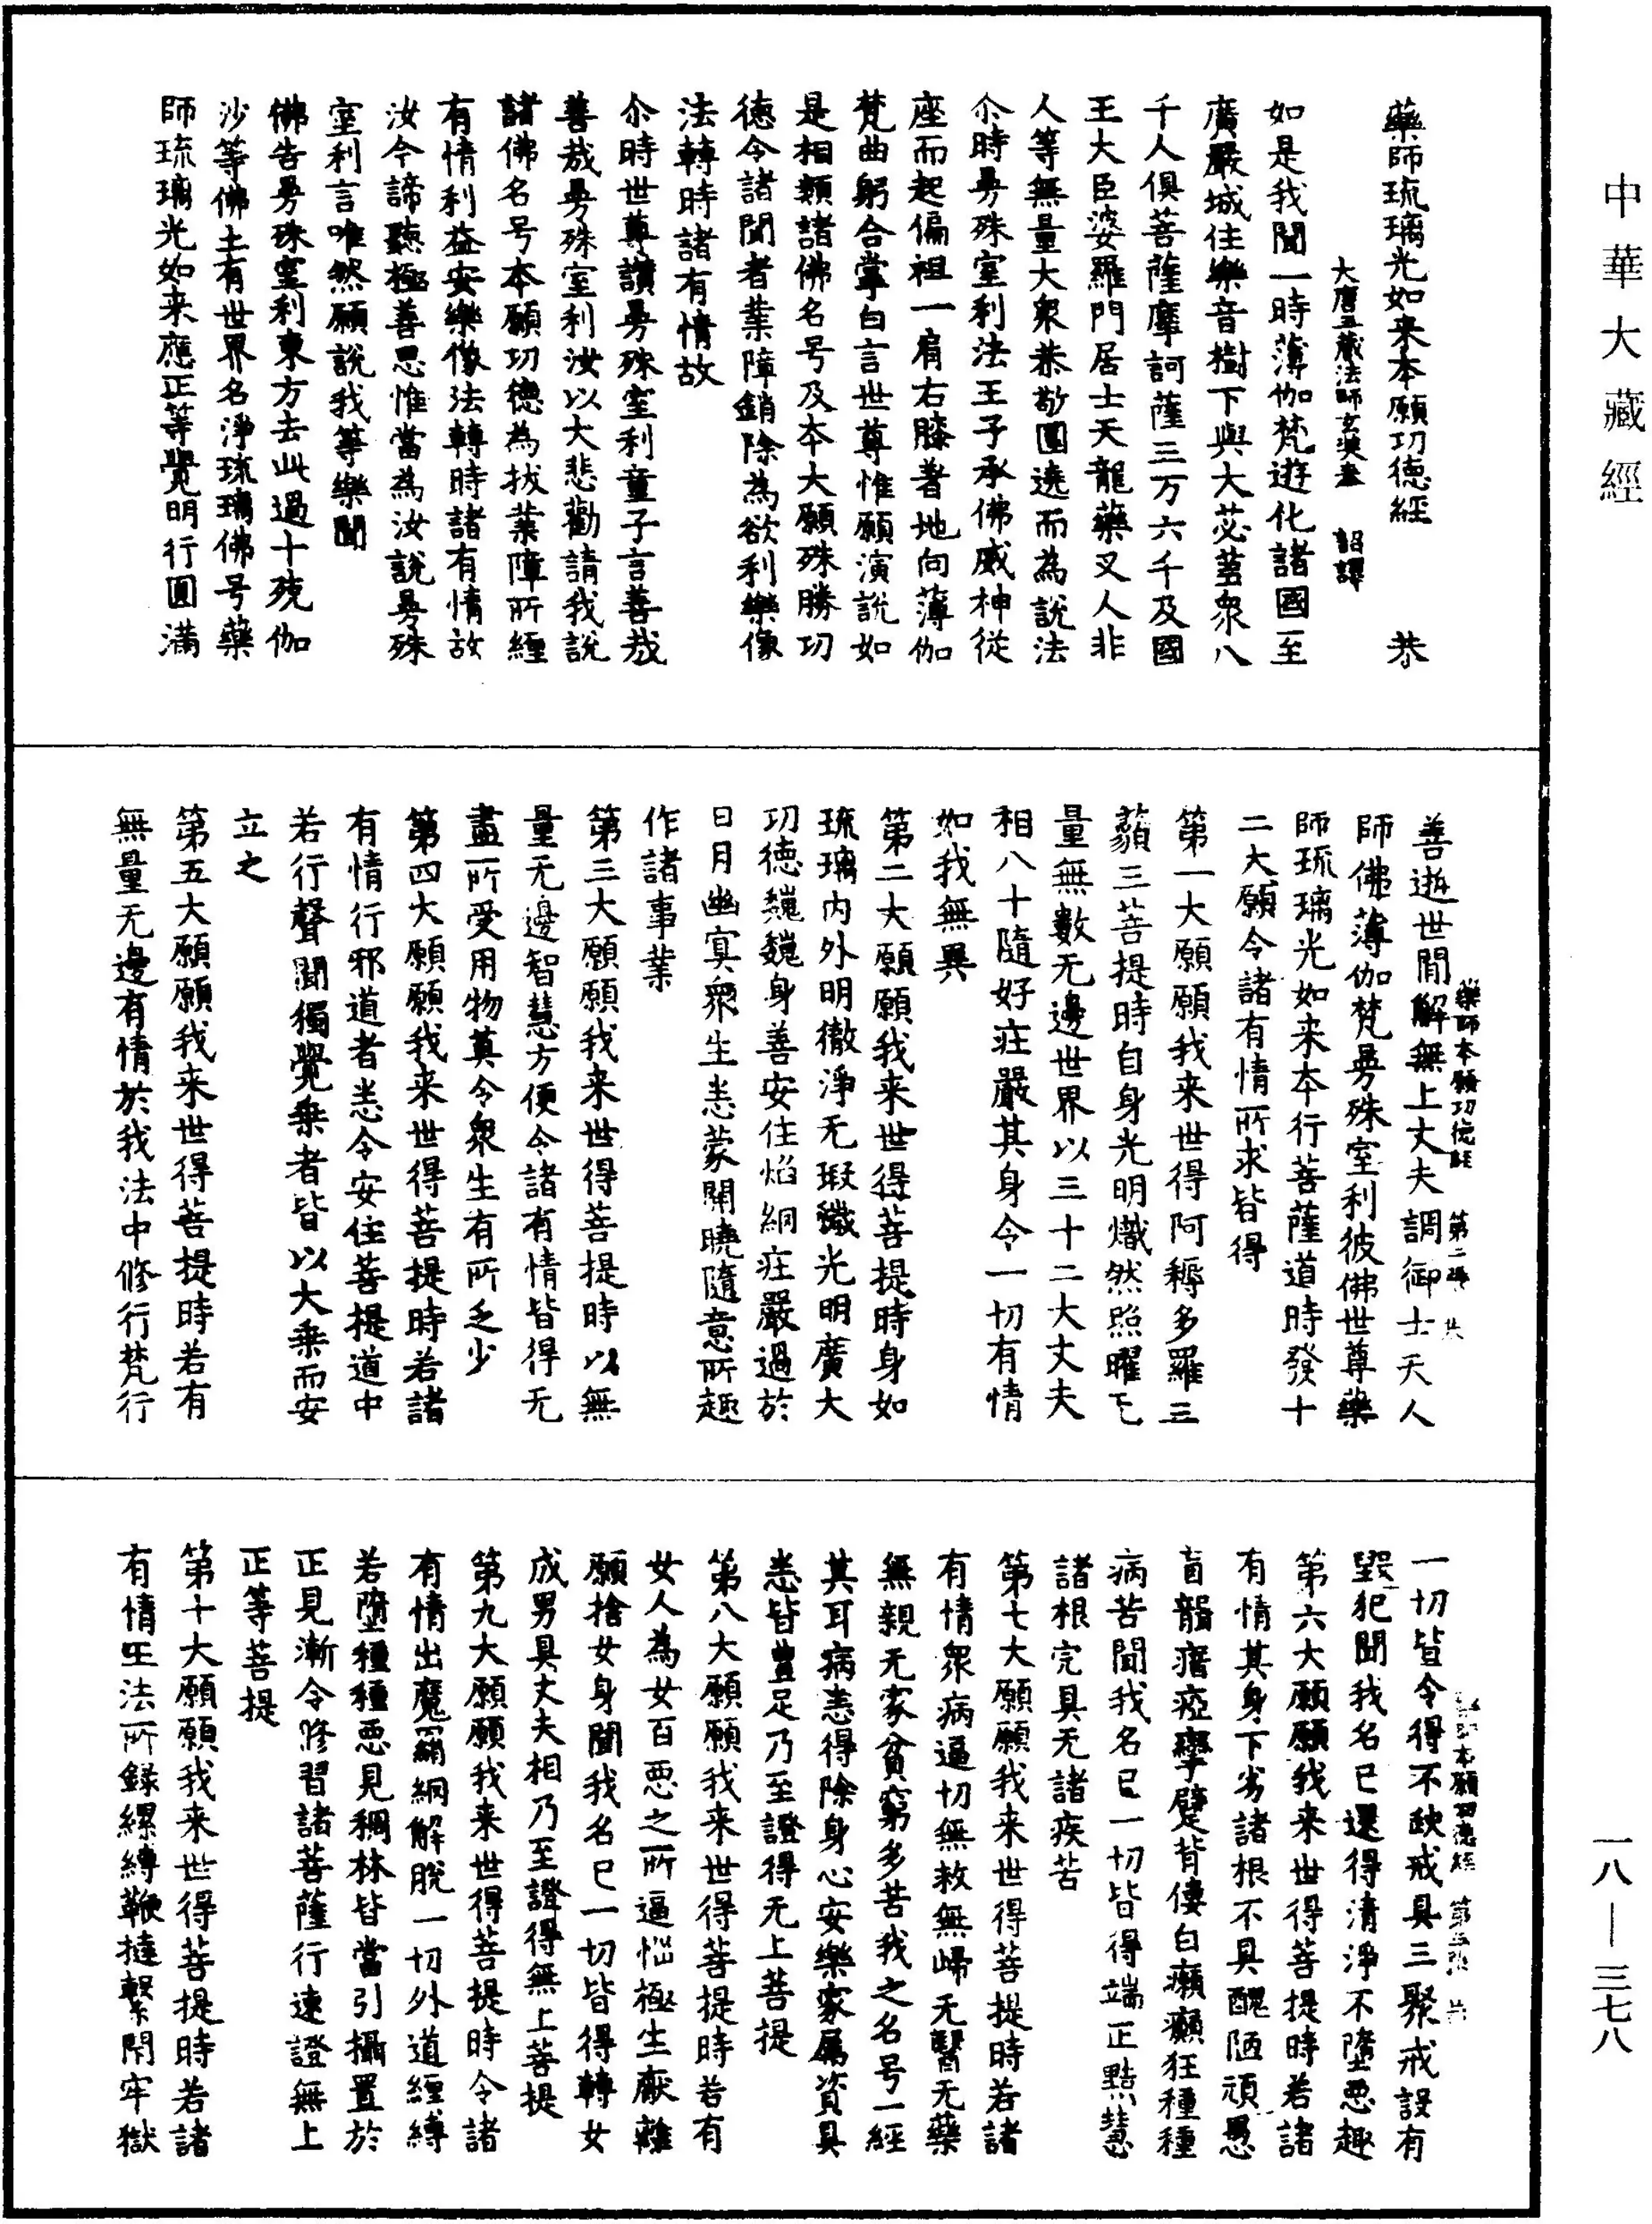 中華大藏經
藥師琉璃光如来本願功德經　恭
大唐三藏法師玄奘奉　詔譯
如是我聞一時薄伽梵遊化諸國至
廣嚴城住樂音樹下與大苾蒭衆八
千人俱菩薩摩訶薩三万六千及國
王大臣婆羅門居士天龍藥叉人非
人等無量大衆恭敬圍遶而為說法
尒時曼殊室利法王子承佛威神從
座而起偏袒一肩右膝著地向薄伽
梵曲躬合掌白言世尊惟願演說如
是相類諸佛名号及本大願殊勝功
德令諸聞者業障銷除為欲利樂像
法轉時諸有情故
尒時世尊讚曼殊室利童子言善哉
善哉曼殊室利汝以大悲勸請我說
諸佛名号本願功德為拔業障所纏
有情利益安樂像法轉時諸有情故
汝今諦聽極善思惟當為汝說曼殊
室利言唯然願說我等樂聞
佛告曼殊室利東方去此過十殑伽
沙等佛土有世界名淨琉璃佛号藥
師琉璃光如来應正等覺明行圓滿
藥師本願功德經　第二張　恭
善逝世間解無上丈夫調御士天人
師佛薄伽梵曼殊室利彼佛世尊藥
師琉璃光如来本行菩薩道時發十
二大願令諸有情所求皆得
第一大願願我来世得阿耨多羅三
藐三菩提時自身光明熾然照曜无
量無數无邊世界以三十二大丈夫
相八十隨好莊嚴其身令一切有情
如我無異
第二大願願我来世得菩提時身如
琉璃内外明徹淨无瑕穢光明廣大
功德巍巍身善安住焰網莊嚴過於
日月幽冥衆生悉蒙開曉隨意所趣
作諸事業
第三大願願我来世得菩提時以無
量无邊智慧方便令諸有情皆得无
盡所受用物莫令衆生有所乏少
第四大願願我来世得菩提時若諸
有情行邪道者悉令安住菩提道中
若行聲聞獨覺乘者皆以大乘而安
立之
第五大願願我来世得菩提時若有
無量无邊有情於我法中修行梵行
本願功德經　第三張
一切皆令得不缺戒具三聚戒設有
毀犯聞我名已還得清淨不墮惡趣
第六大願願我来世得菩提時若諸
有情其身下劣諸根不具醜陋頑愚
盲聾瘖瘂攣躄背僂白癩癲狂種種
病苦聞我名已一切皆得端正黠慧
諸根完具无諸疾苦
第七大願願我来世得菩提時若諸
有情衆病逼切無救無歸无醫无藥
無親无家貧窮多苦我之名号一經
其耳病悉得除身心安樂家屬資具
悉皆豊足乃至證得无上菩提
第八大願願我来世得菩提時若有
女人為女百惡之所逼惱極生厭離
願捨女身聞我名已一切皆得轉女
成男具丈夫相乃至證得無上菩提
第九大願願我来世得菩提時令諸
有情出魔羂網解脫一切外道纏縛
若墮種種惡見稠林皆當引攝置於
正見漸令修習諸菩薩行速證無上
正等菩提
第十大願願我来世得菩提時若諸
有情王法所錄縲縛鞭撻繫閇牢獄
一八—三七八